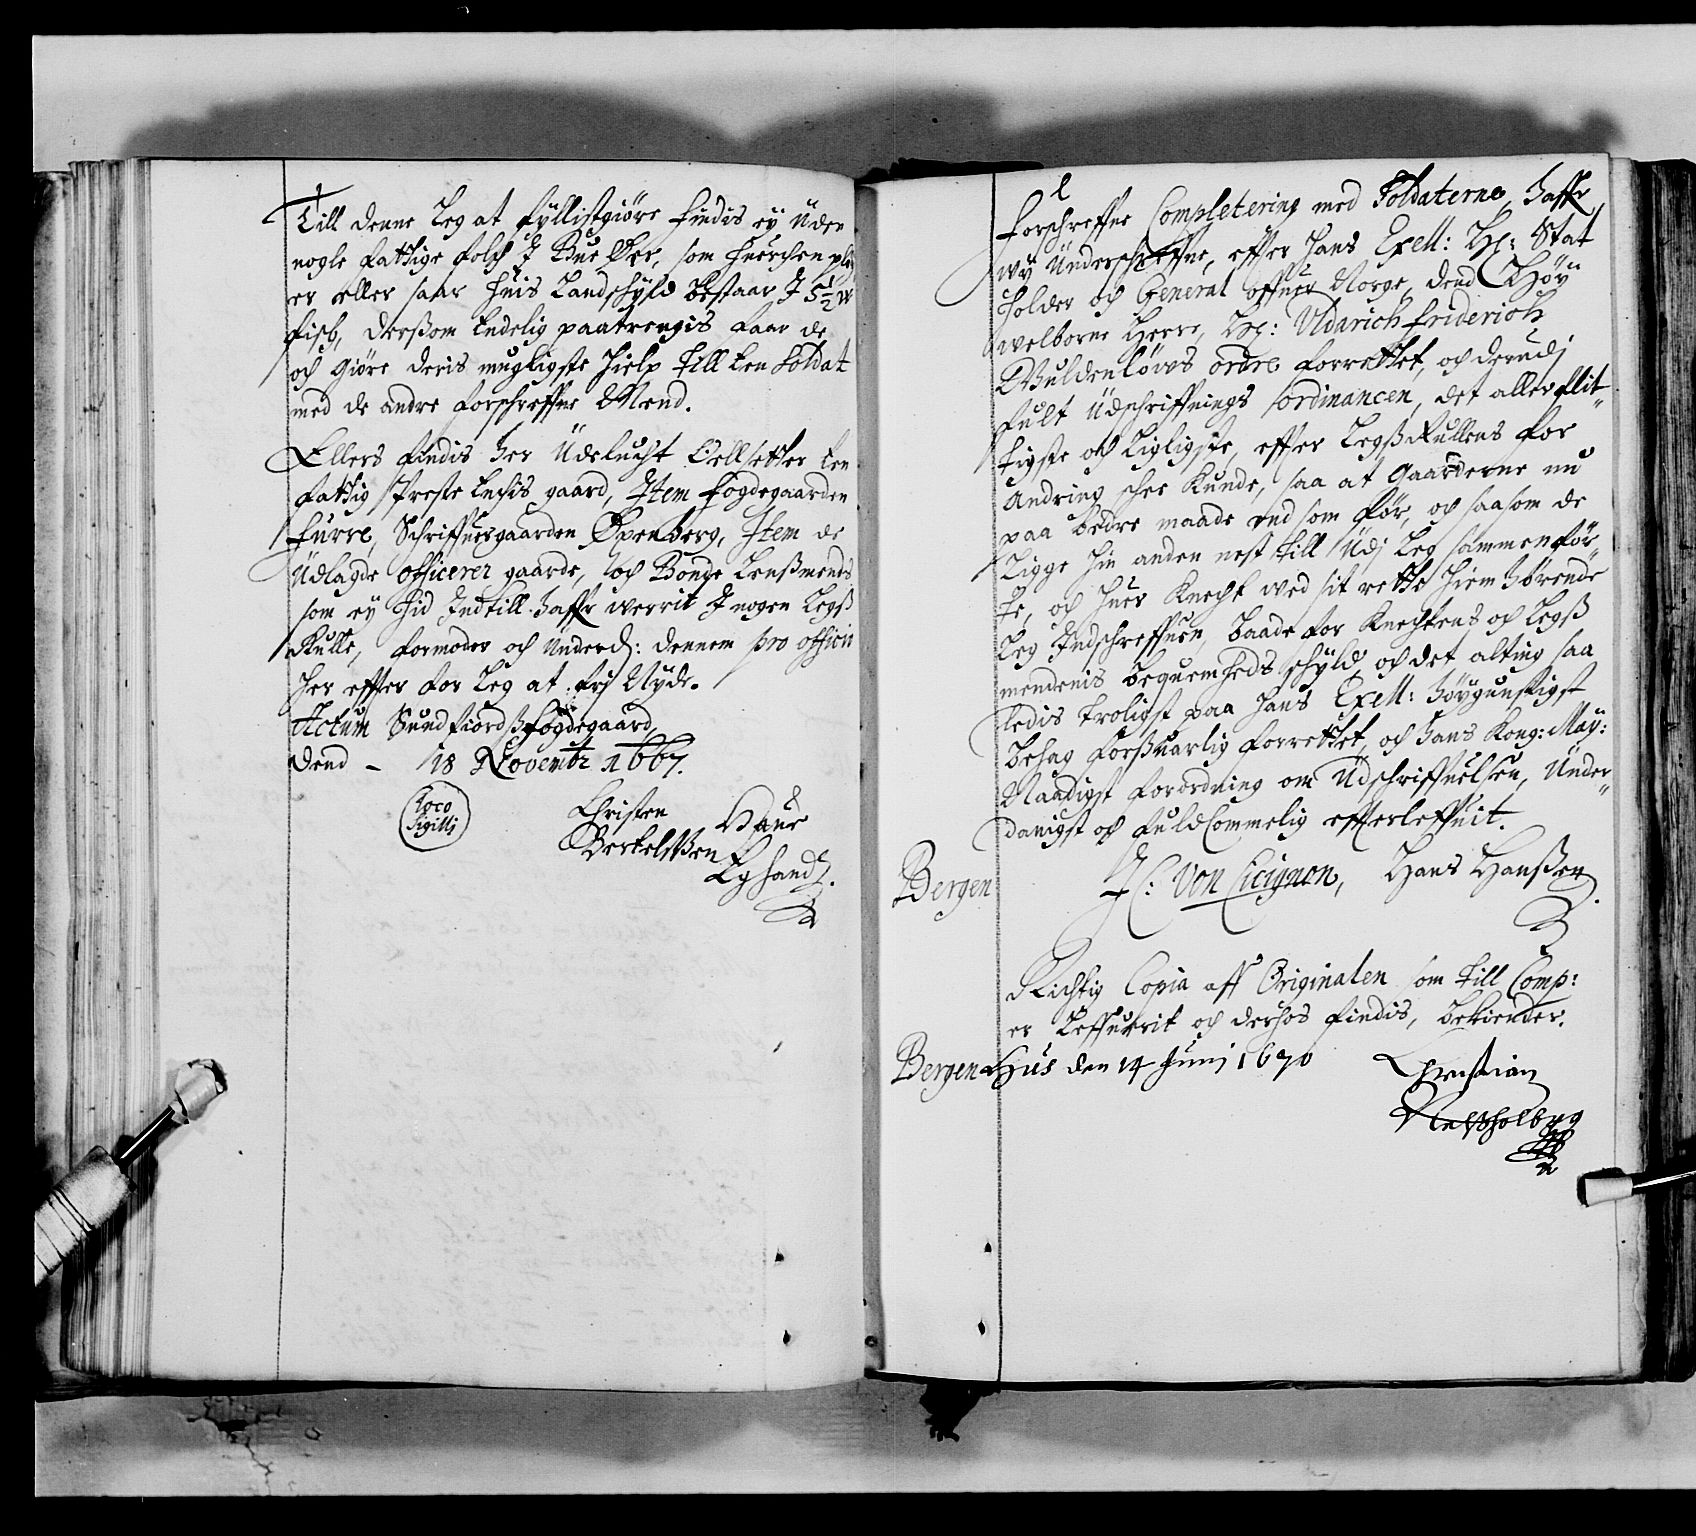 Till denne Leg at fyllistgiøre findis ey uden
nogle fattige folch J Bue Øer, som huerchen pløy
er eller saar huis Landschyld bestaar J 5½ W
fisch, dersom Endelig paatrengis faar de
och giøre deris mugligste hielp till Een Soldat
med de andre forschreffne Mend.
Ellers findis her Udeluckt Tellsetter Een
fattig Preste Enchis gaard, Item fogdegaarden
furre, Schriffuergaarden Øpenberg, Item de
Udlagde Officerer gaarde, och Bonde Lenßmends
som ey hid Indtill haffr werrit J nogen Legß
Rulle, formoder och Underd: dennem pro officii
her effter for Leg at frj Nyde.
Actum Sundfiordß fogdegaard,
Dend - 18 Novembr 1667.
Loco
Sigilli
Christen
Berkelsßen
Haue
Eghand
forschreffne Completering med Soldaterne, haffr
wy Underschreffne, effter hans Exell: Hr: Stat
holder och General offuer Norge, dend Høy
welborne Herre, Hr: Uldrich friderich
Guldenløws ordre forrettet, och derudj
fult Udschriffnings ordinancen, det aller flit
tigste och Ligligste, effter Legß Rullens for
Andring schee Kunde, saa at Gaarderne nu
paa bedre maade end som før, och saasom de
Ligge hin anden nest till Udj Leg sammenfør
te, och huer Knecht wed sit rette hiem hørende
Leg Indschreffuen, baade for Knechtens och Legß
mendenis bequemheds schyld, och det alting saa
ledis troligst paa hans Exell: høygunstigst
behag forßuarlig forrettet, och hans Kong: May:
Naadigst forordning om Udschriffuelsen, Under
danigst och fuldkommelig effterleffuit.
Bergen
J C: Von Cicignon, Hans Hanßen
Richtig Copia aff Originalen som till Comp:
er Leffuerit och derhos findis, bekiender.
Bergen Hus den 14 Junj 1670
Christian